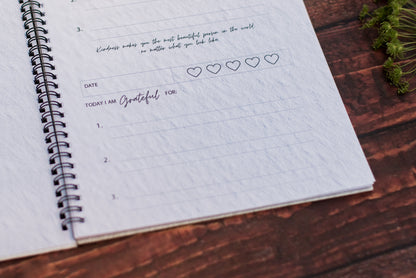 2.
3.
Kindness makes you the most beautiful person in the world
no matter what you look like.
DATE
TODAY I AM Grateful FOR:
1.
2.
3.